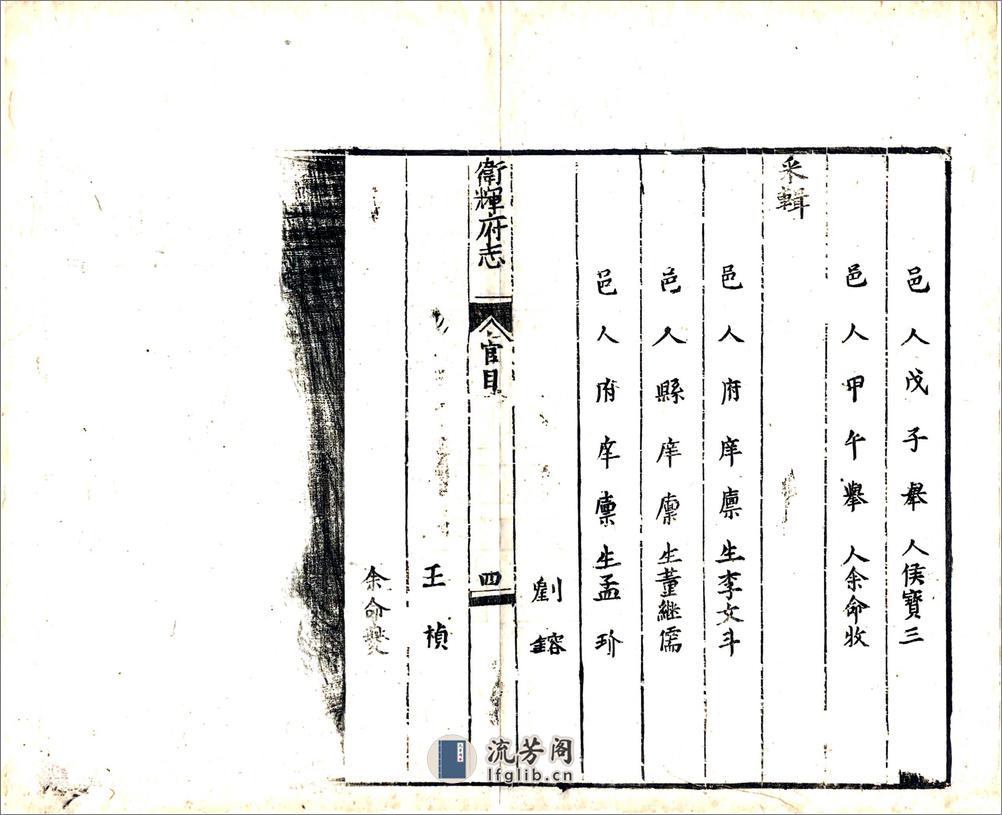 邑人戊子舉人侯寶三
邑人甲午舉人余命牧
采輯
邑人府庠廪生李文斗
邑人縣庠廪生董継儒
邑人府庠廪生孟珍
劉鎔
衛輝府志
官目
四
王楨
余命夔
流芳阁
lfglib.cn